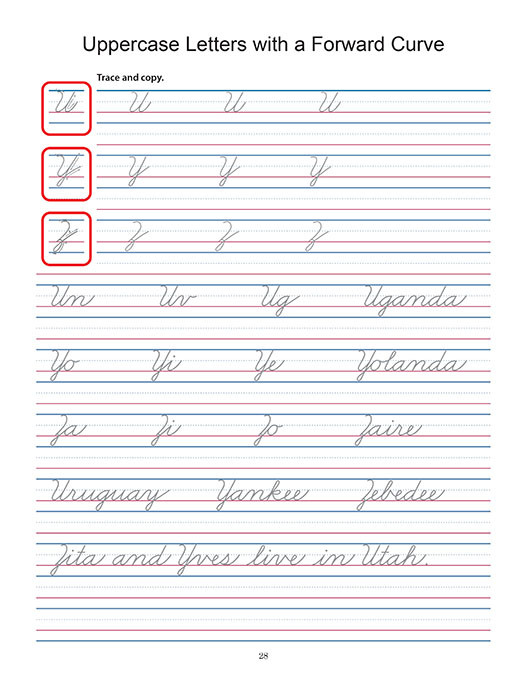 Uppercase Letters with a Forward Curve
Trace and copy.
U U U U
Y Y Y Y
Z Z Z Z
Un Uv Ug Uganda
Yo Yi Ye Yolanda
Za Zi Zo Zaire
Uruguay Yankee Zebedee
Zita and Yves live in Utah.
28